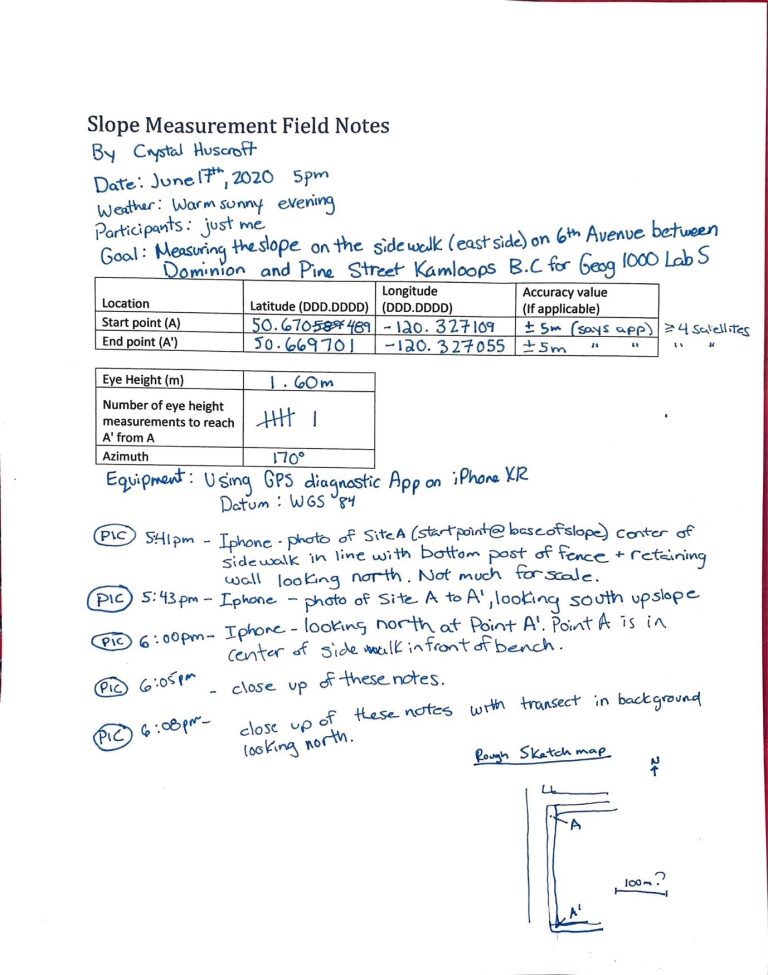 Slope Measurement Field Notes
By Crystal Huscroft
Date: June 17th, 2020 5pm
Weather: Warm sunny evening
Participants: just me
Goal: Measuring the slope on the sidewalk (east side) on 6th Avenue between
Dominion and Pine Street Kamloops B.C for Geog 1000 Lab 5
Location Latitude (DDD.DDDD) Longitude (DDD.DDDD) Accuracy value (If applicable)
Start point (A) 50.670489 -120.327109 ± 5m (says app) ≥ 4 satellites
End point (A') 50.669701 -120.327055 ± 5m " " " "
Eye Height (m) 1.60m
Number of eye height
measurements to reach
A' from A 卌 |
Azimuth 170°
Equipment: Using GPS diagnostic App on iPhone XR
Datum: WGS '84
PIC 5:41pm - Iphone - photo of Site A (start point @ base of slope) center of
sidewalk in line with bottom post of fence + retaining
wall looking north. Not much for scale.
PIC 5:43pm - Iphone - photo of Site A to A', looking south upslope
PIC 6:00pm - Iphone - looking north at Point A'. Point A is in
center of side walk in front of bench.
PIC 6:05pm - close up of these notes.
PIC 6:08pm - close up of these notes with transect in background
looking north.
Rough Sketch map
N
A
100m?
A'